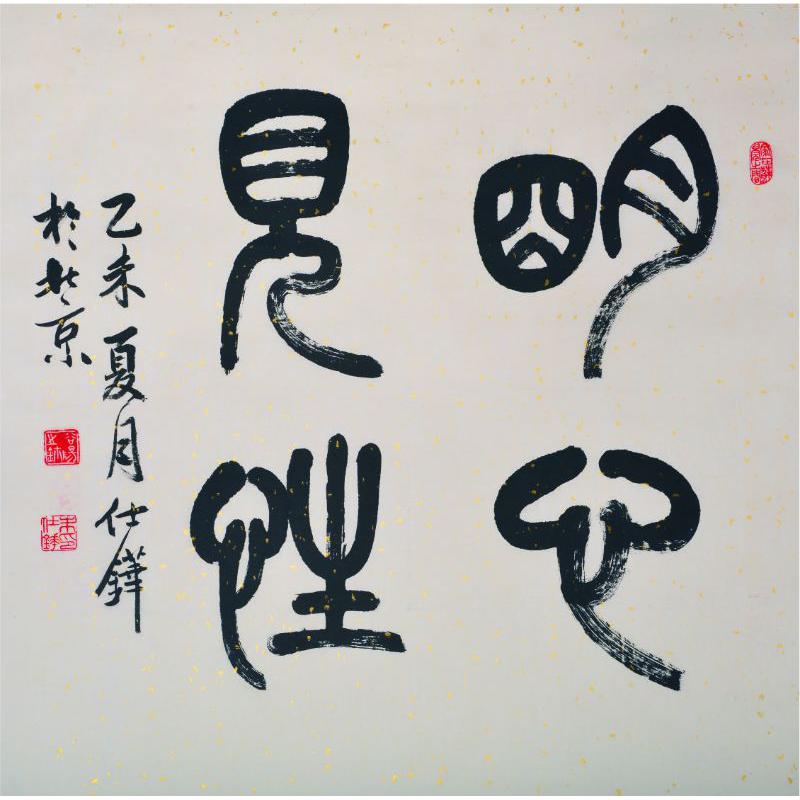 明心
見性
乙未夏月仕鏵
於北京